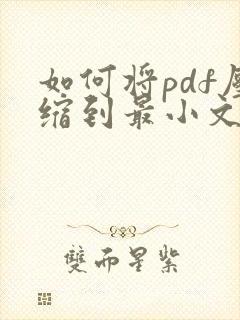 如何将pdf压
缩到最小文
雙而星紫